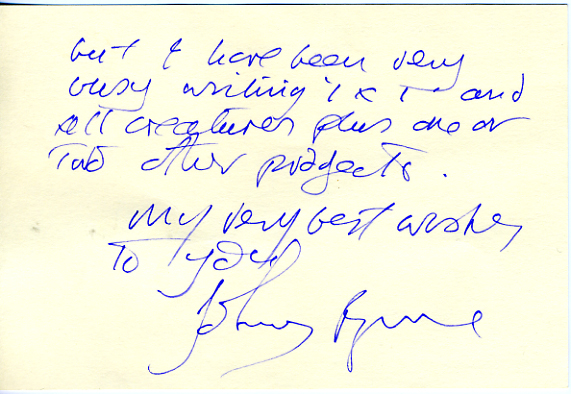 but I have been very
busy writing and
All creatures plus one or
Two other projects.
My very best wishes
To you
Johnny Byrne